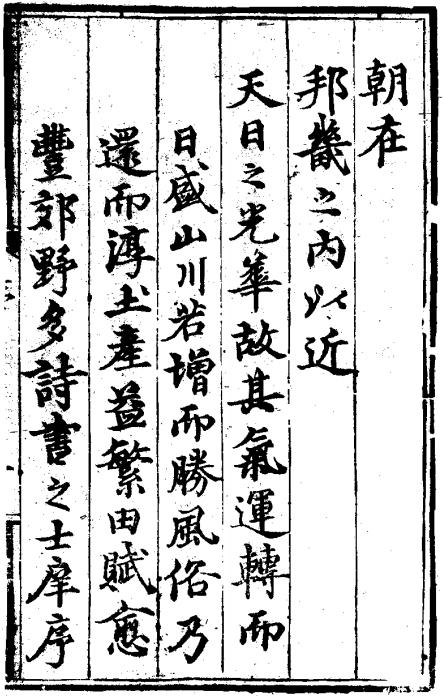 朝在
邦畿之内以近
天日之光華故其氣運轉而
日盛山川若增而勝風俗乃
還而淳土產益繁田賦愈
豐郊野多詩書之士庠序